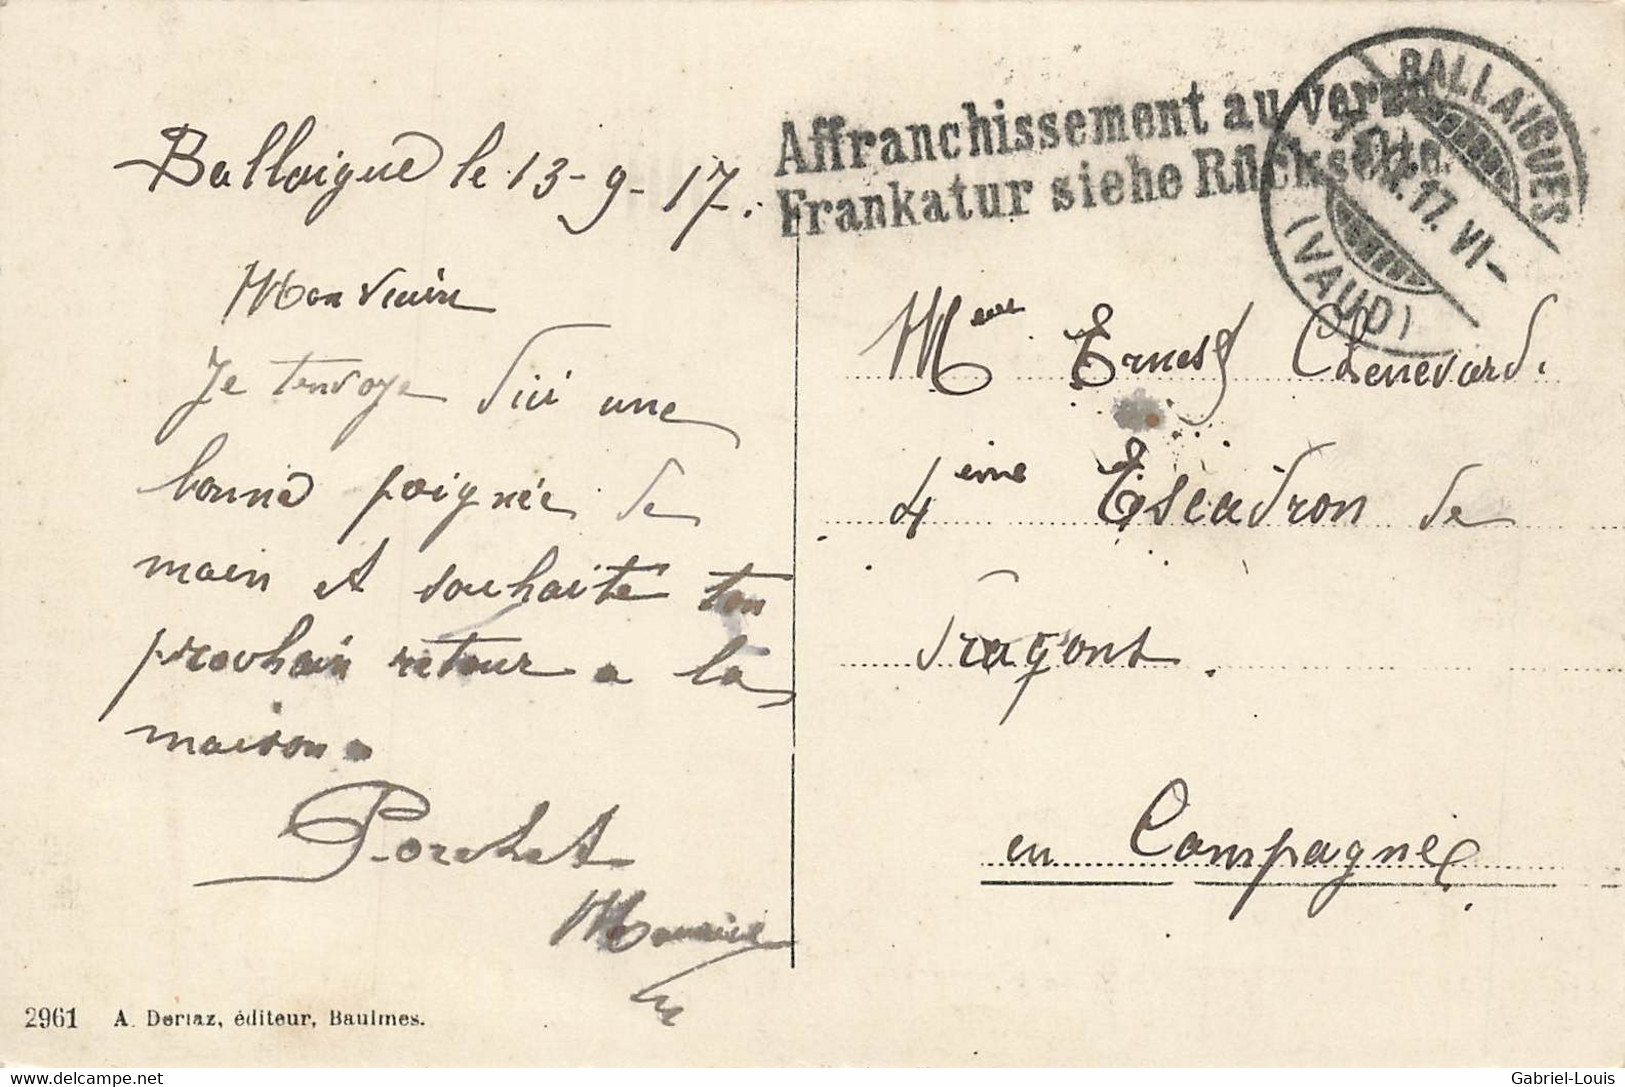 Ballaigue le 13-9-17.
Mon vieux
Je t'envoye d'ici une
bonne poignée de
main et souhaite ton
prochain retour a la
maison.
Porchet
Maurice
2961 A. Deriaz, éditeur, Baulmes.
Affranchissement au verso
Frankatur siehe Rückseite.
BALLAIGUES
17. VI-
(VAUD)
Ernest Chenevard.
4ème Escadron de
Dragons.
en Campagne.
Gabriel-Louis
delcampe.net